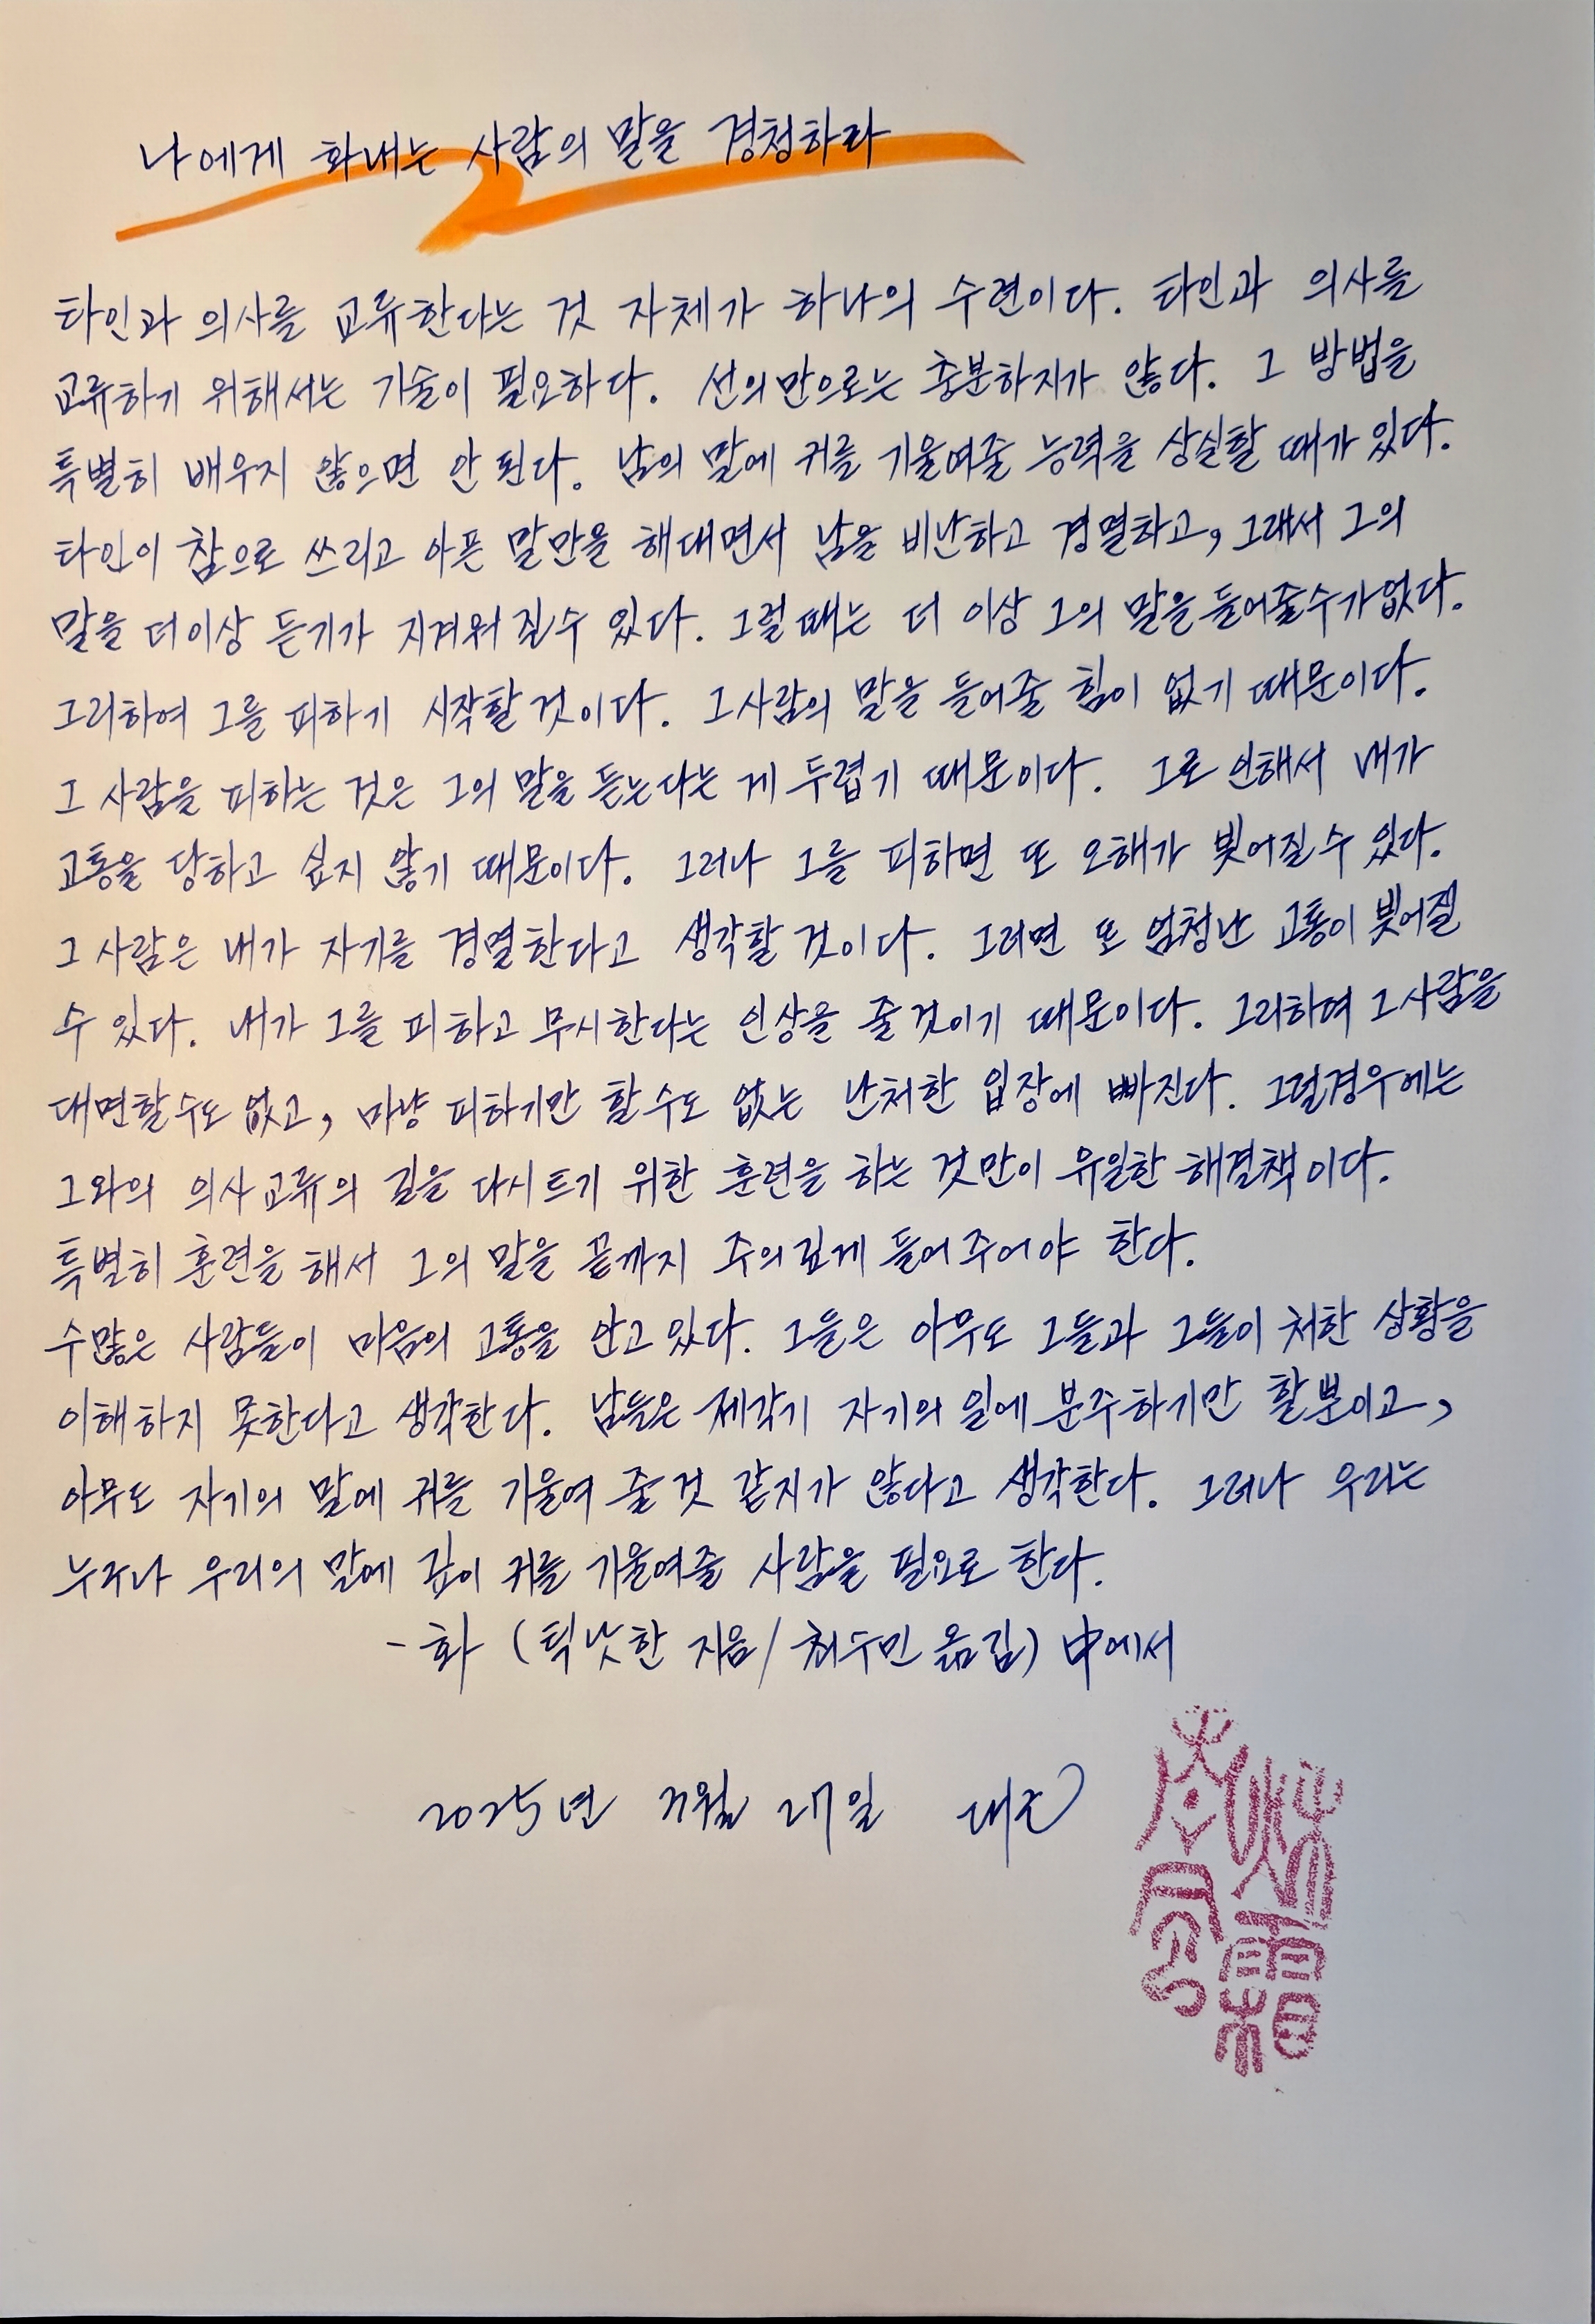 나에게 화내는 사람의 말을 경청하라
타인과 의사를 교류한다는 것 자체가 하나의 수련이다. 타인과 의사를
교류하기 위해서는 기술이 필요하다. 선의만으로는 충분하지가 않다. 그 방법을
특별히 배우지 않으면 안 된다. 남의 말에 귀를 기울여줄 능력을 상실할 때가 있다.
타인이 참으로 쓰리고 아픈 말만을 해대면서 남을 비난하고 경멸하고, 그래서 그의
말을 더이상 듣기가 지겨워 질수 있다. 그럴 때는 더 이상 그의 말을 들어줄수가없다.
그리하여 그를 피하기 시작할 것이다. 그사람의 말을 들어줄 힘이 없기 때문이다.
그 사람을 피하는 것은 그의 말을 듣는다는 게 두렵기 때문이다. 그로 인해서 내가
고통을 당하고 싶지 않기 때문이다. 그러나 그를 피하면 또 오해가 빚어질수 있다.
그 사람은 내가 자기를 경멸한다고 생각할 것이다. 그러면 또 엄청난 고통이 빚어질
수 있다. 내가 그를 피하고 무시한다는 인상을 줄것이기 때문이다. 그리하여 그사람을
대면할수도 없고, 마냥 피하기만 할수도 없는 난처한 입장에 빠진다. 그럴경우에는
그와의 의사교류의 길을 다시 트기 위한 훈련을 하는 것만이 유일한 해결책이다.
특별히 훈련을 해서 그의 말을 끝까지 주의깊게 들어주어야 한다.
수많은 사람들이 마음의 고통을 안고있다. 그들은 아무도 그들과 그들이 처한 상황을
이해하지 못한다고 생각한다. 남들은 제각기 자기의 일에 분주하기만 할뿐이고,
아무도 자기의 말에 귀를 기울여 줄것 같지가 않다고 생각한다. 그러나 우리는
누구나 우리의 말에 깊이 귀를 기울여줄 사람을 필요로 한다.
- 화 (틱낫한 지음/ 최수민 옮김) 中에서
2025년 月 27일